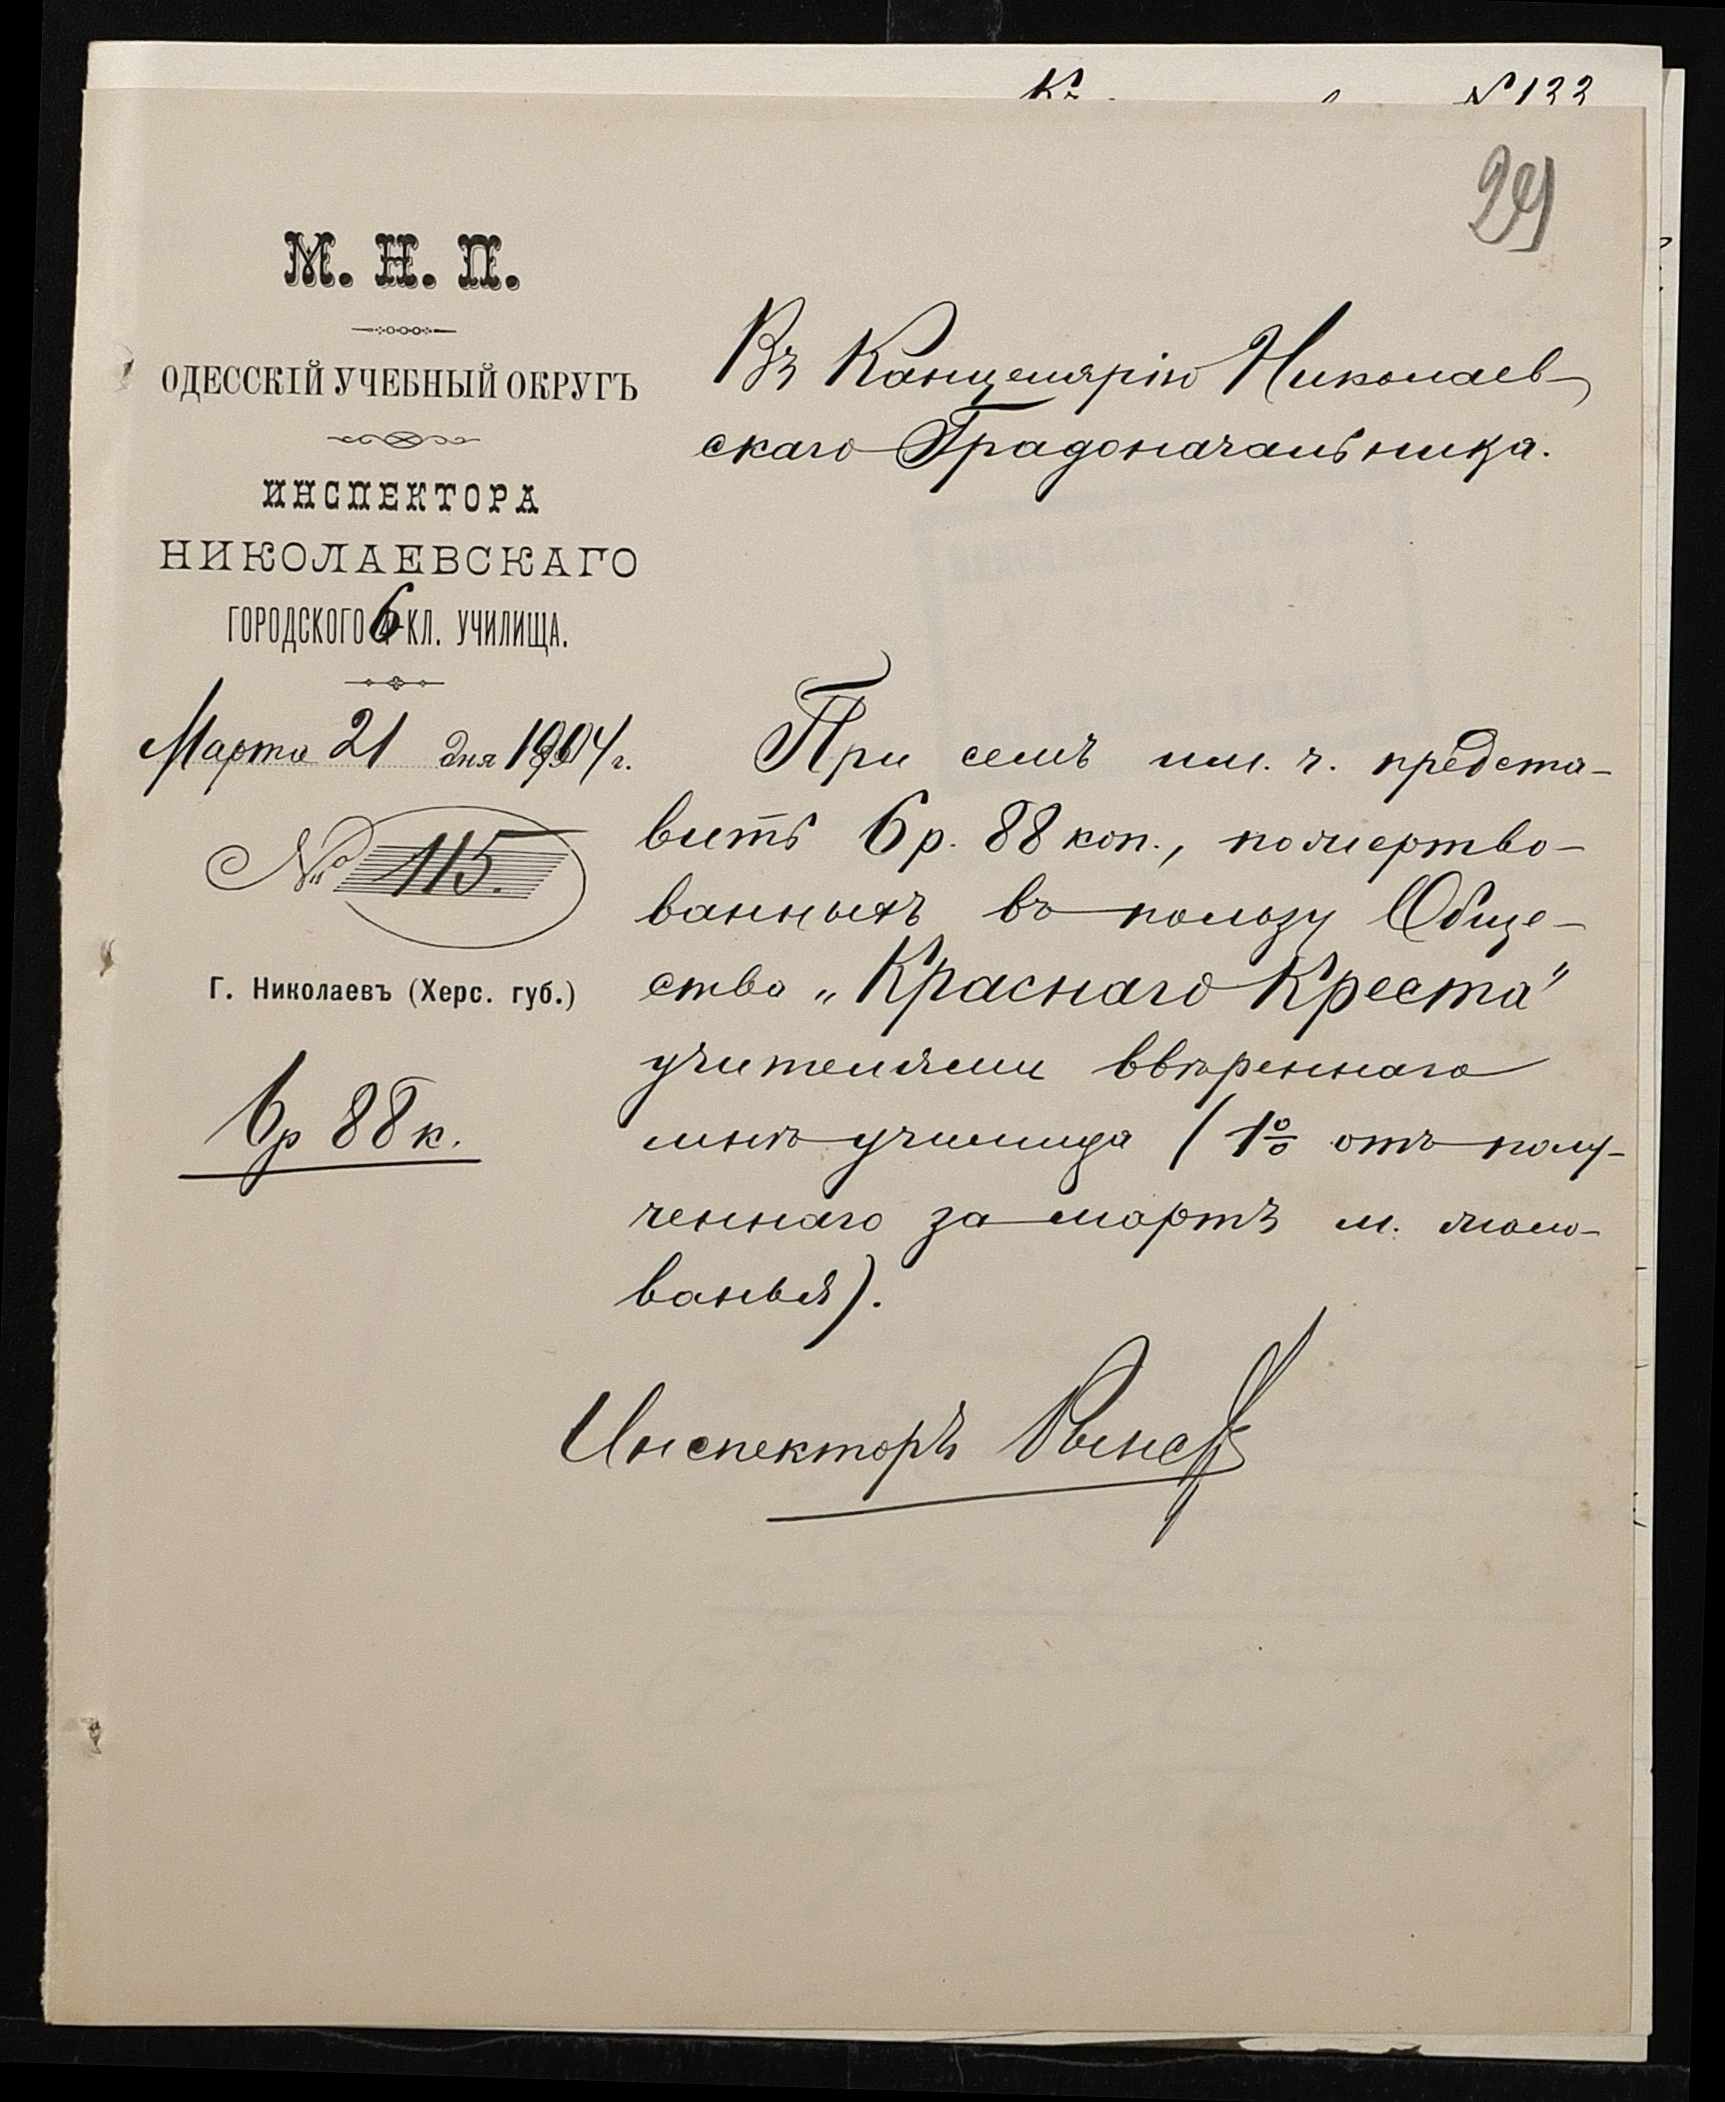 № 122
29
М. Н. П.
ОДЕССКІЙ УЧЕБНЫЙ ОКРУГЪ
ИНСПЕКТОРА
НИКОЛАЕВСКАГО
ГОРОДСКОГО 6 КЛ. УЧИЛИЩА.
Марта 21 дня 1904 г.
№ 115.
Г. Николаевъ (Херс. губ.)
6 р 88 к.
Въ Канцелярію Николаев-
скаго Градоначальника.
При семъ им. ч. предста-
вить 6 р. 88 коп., пожертво-
ванныхъ въ пользу Обще-
ства „Краснаго Креста"
учителями ввѣреннаго
мнѣ училища (1% отъ полу-
ченнаго за мартъ м. жало-
ванья).
Инспекторъ